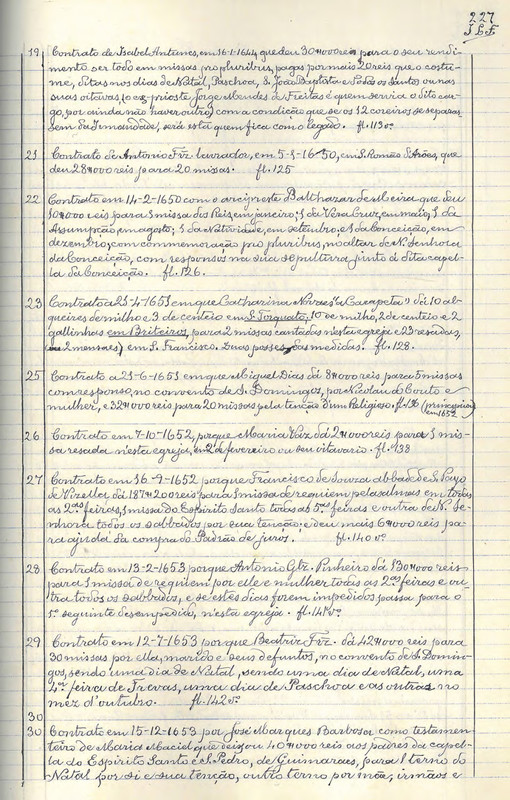 227
19 Contrato de Isabel Antunes, em 16-1-1644 que deu 30#000 reis para o seu rendi-
mento ser todo em missas pro pluribus, pagas por mais 20 reis que o costu-
me, ditas nos dias de Natal, Paschoa, S. João Baptista e Todos os Santos ou nas
suas oitavas, (o ex-prioste Jorge Mendes de Freitas é quem servia o dito car-
go, por ainda não haver outro) com a condição que se os 12 coreiros se separas-
sem da Irmandade, será esta quem fica com o legado. fl. 113 vº
21 Contrato de Antonio Frz lavrador, em 5-1-1650, em S. Romão d'Arões, que
deu 28#000 reis para 20 missas. fl. 125
22 Contrato em 14-2-1650 com o arcipreste Balthazar de Meira que deu
10#000 reis para 1 missa dos Reis, em janeiro; 1 da Vera Cruz, em maio; 1 da
Assumpção, em agosto; 1 da Natividade, em setembro, e 1 da Conceição, em
dezembro; com commemoração pro pluribus, no altar de N. Senhora
da Conceição, com responsos na sua sepultura junto á dita capel-
la da Conceição. fl. 126.
23 Contrato a 25-4-1651 em que Catharina Novaes "a Cacapeta" dá 10 al-
queires de milho e 3 de centeio em S. Torquato; 10 de milho, 2 de centeio e 2
gallinhas em Briteiros, para 2 missas cantadas n'esta egreja e 23 resadas,
2 mensaes, em S. Francisco. Duas posses das medidas. fl. 128.
25 Contrato a 21-6-1651 em que Miguel Dias dá 8#000 reis para 5 missas
com responso, no convento de S. Domingos, por Nicolau do Couto e
mulher, e 32#000 reis para 20 missas pela tenção d'um Religioso. fl. 136 (principiou em 1652
26 Contrato em 7-10-1652, porque Maria Vaz dá 2#000 reis para 1 mis-
sa resada n'esta egreja, em 2 de fevereiro ou seu oitavario. fl. 138
27 Contrato em 16-9-1652 porque Francisco de Souza abbade de S. Payo
de Vizella dá 187#020 reis para 1 missa de requiem pelas almas em todas
as 2.as feiras, 1 missa do Espirito Santo todas as 5.as feiras e outra de N. Se-
nhora todos os sabbados por sua tenção; e deu mais 6#000 reis pa-
ra ajuda da compra do Padrão de juros. fl. 140 vº
28 Contrato em 13-2-1653 porque Antonio Glz. Pinheiro dá 130#000 reis
para 1 missa de requiem por elle e mulher todas as 2.as feiras e ou-
tra todos os sabbados, e se estes dias forem impedidos passa para o
1.º seguinte desempedido, n'esta egreja. fl. 141 vº
29 Contrato em 12-7-1653 por que Beatriz Frz. dá 42#000 reis para
30 missas por ella, marido e seus defuntos, no convento de S. Domin-
gos, sendo uma dia de Natal, uma
4.ª feira de Trevas, uma dia de Paschoa e as outras no
mez d'outubro. fl. 142 vº
30
30 Contrato em 15-12-1653 por José Marques Barbosa como testamen-
teiro de Maria Maciel que deixou 40#000 reis aos padres da capel-
la do Espirito Santo e S. Pedro, de Guimaraes, para 1 terno do
Natal por si e sua tenção, outro terno por mãe, irmãos e